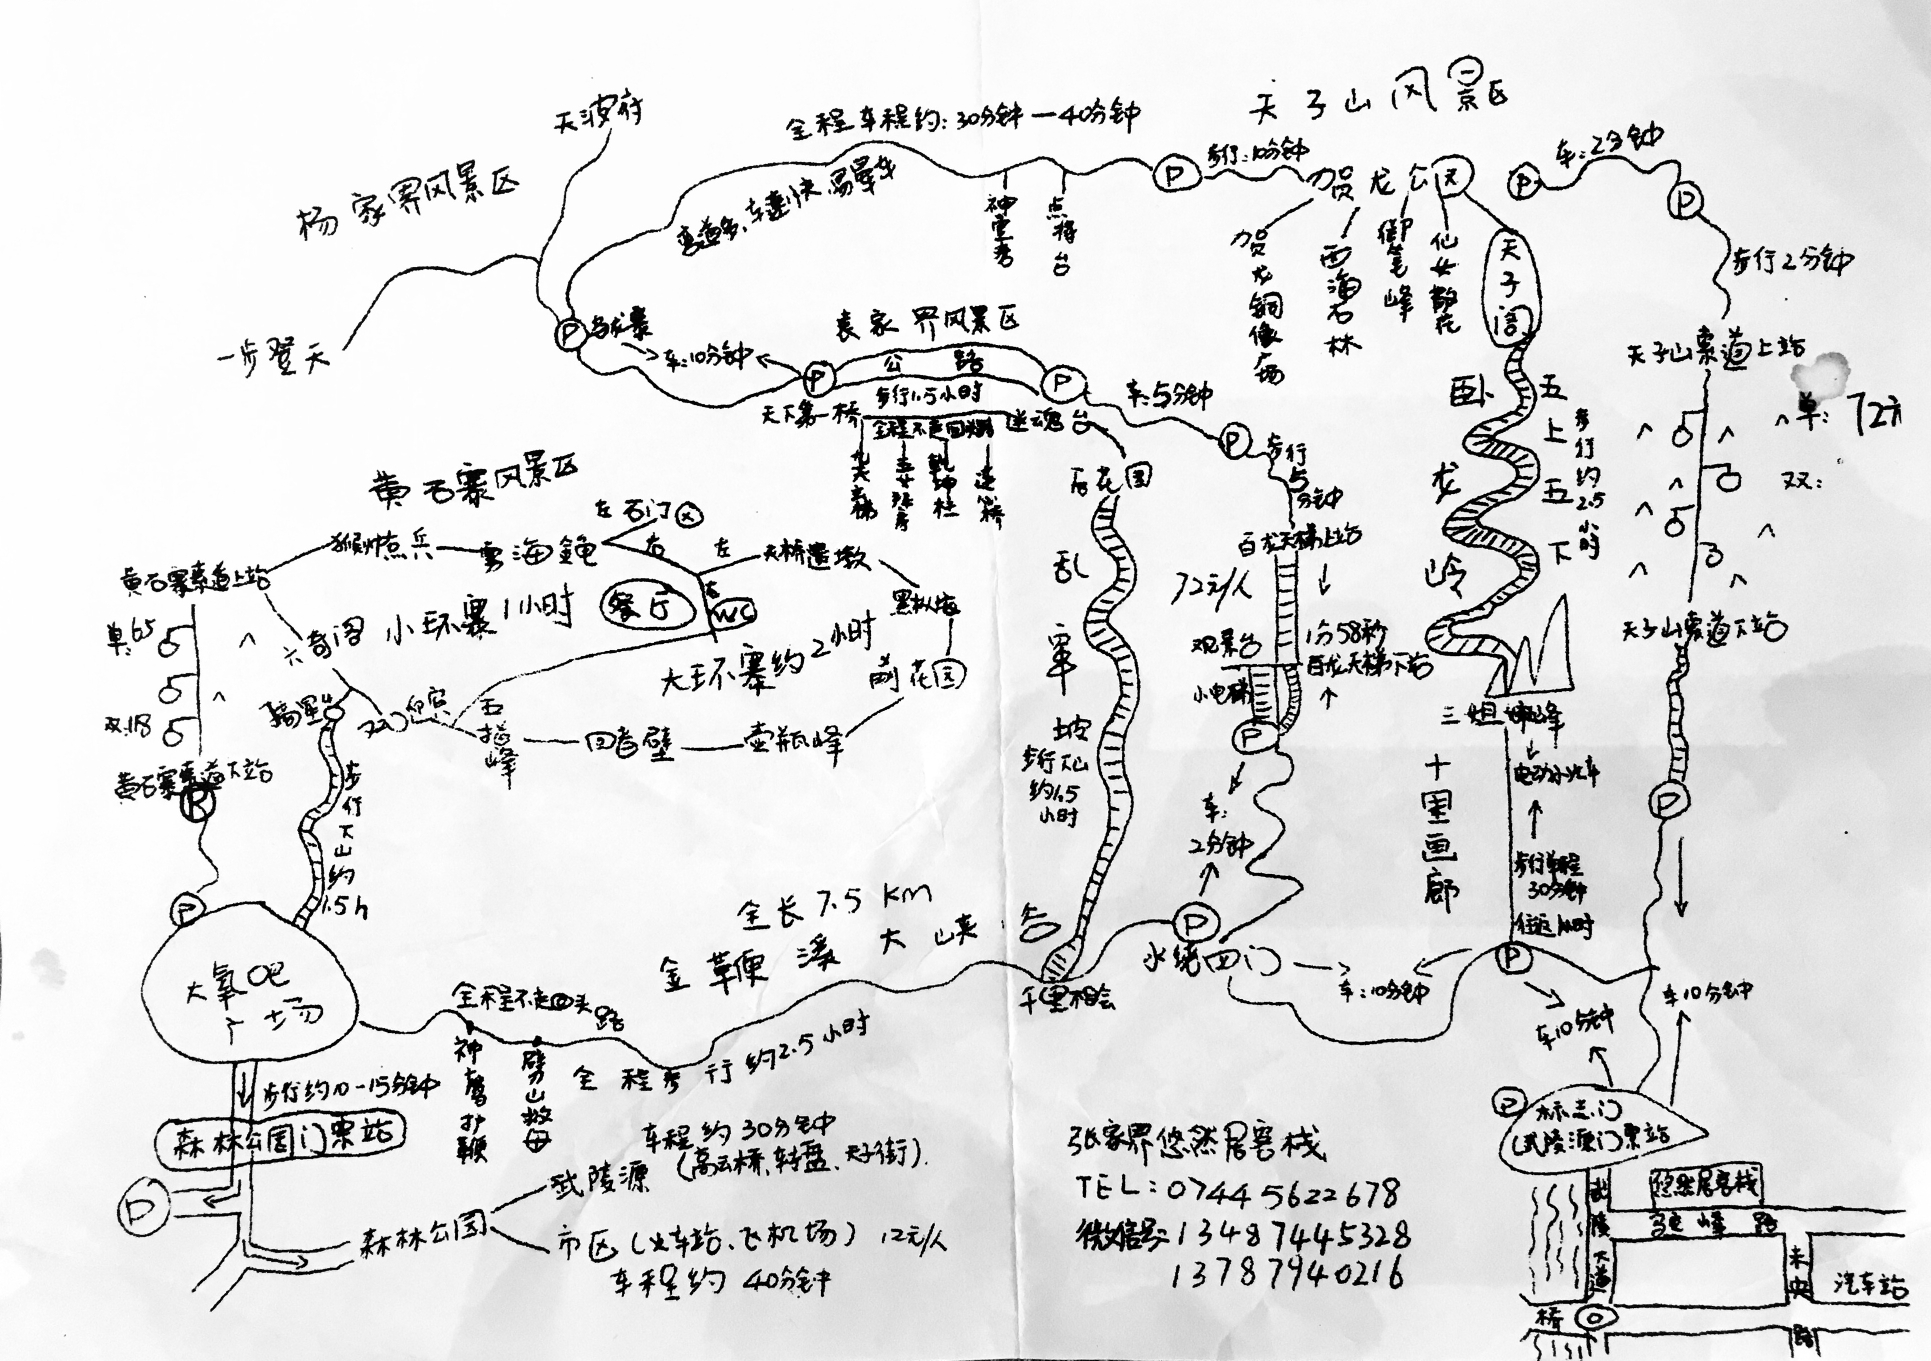 天子山风景区
天波府
全程车程约:30分钟—40分钟
弯道多,车速快,易晕车
杨家界风景区
一步登天
P
乌龙寨
车:10分钟
神堂湾
点将台
P
步行:10分钟
贺龙公园
贺龙铜像广场
西海石林
御笔峰
仙女散花
天子阁
P
车:2分钟
P
步行2分钟
天子山索道上站
单:72元
双:
天子山索道下站
P
袁家界风景区
公路
P
P
步行1.5小时
天下第一桥
全程不走回头路
迷魂台
九天玄梯
乾坤柱
连心桥
后花园
车:5分钟
P
步行5分钟
百龙天梯上站
72元/人
1分58秒
观景台
百龙天梯下站
小电梯
P
车:2分钟
P
水绕四门
车:10分钟
卧龙岭
五上五下
步行约2.5小时
三姐妹峰
电动小火车
十里画廊
步行单程30分钟
往返1小时
P
车10分钟
车10分钟
黄石寨风景区
黄石寨索道上站
猴帅点兵
雾海金龟
左 石门
右
左
天桥遗墩
右
黑枞垴
单:65
双:118
六奇阁
小环寨1小时
餐厅
WC
大环寨约2小时
前花园
摘星台
双门迎宾
五指峰
回音壁
壶瓶峰
黄石寨索道下站
步行下山约1.5h
P
大氧吧广场
乱窜坡
步行下山约1.5小时
全长7.5Km
金鞭溪大峡谷
千里相会
全程不走回头路
神鹰护鞭
劈山救母
全程步行约2.5小时
步行约10-15分钟
森林公园门票站
P
森林公园
武陵源
车程约30分钟
(高云桥、转盘、天子街)
市区(火车站、飞机场)12元/人
车程约40分钟
张家界悠然居客栈
TEL:0744 5622678
微信号:13487445328
13787940216
P
标志门
(武陵源门票站
悠然居客栈
武陵大道
未央路
汽车站
桥